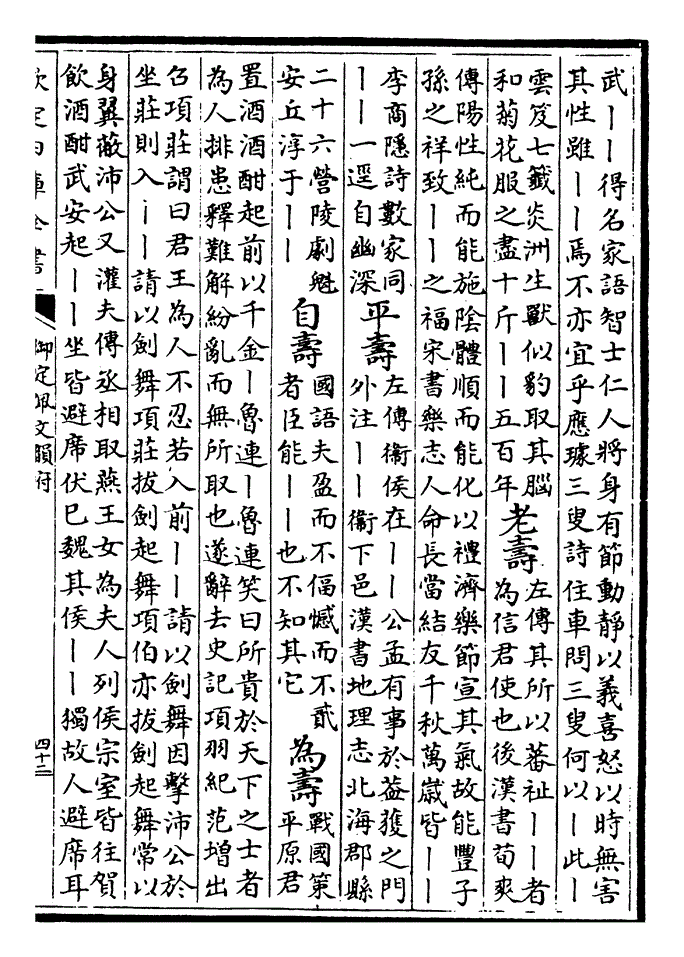 武丨丨得名家語智士仁人將身有節動靜以義喜怒以時無害
其性雖丨丨焉不亦宜乎應璩三叟詩住車問三叟何以丨此丨
雲笈七籤炎洲生獸似豹取其腦
和菊花服之盡十斤丨丨五百年
老壽
左傳其所以蕃祉丨丨者
為信君使也後漢書荀爽
傳陽性純而能施陰體順而能化以禮濟樂節宣其氣故能豐子
孫之祥致丨丨之福宋書樂志人命長當結友千秋萬歲皆丨丨
李商隱詩數家同
丨丨一逕自幽深
平壽
左傳衞侯在丨丨公孟有事於蓋獲之門
外注丨丨衞下邑漢書地理志北海郡縣
二十六營陵劇魁
安丘淳于丨丨
自壽
國語夫盈而不偪憾而不貳
者臣能丨丨也不知其它
為壽
戰國策
平原君
置酒酒酣起前以千金丨魯連丨魯連笑曰所貴於天下之士者
為人排患釋難解紛亂而無所取也遂辭去史記項羽紀范增出
召項莊謂曰君王為人不忍若入前丨丨請以劍舞因擊沛公於
坐莊則入丨丨請以劍舞項莊拔劍起舞項伯亦拔劍起舞常以
身翼蔽沛公又灌夫傳丞相取燕王女為夫人列侯宗室皆往賀
飲酒酣武安起丨丨坐皆避席伏已魏其侯丨丨獨故人避席耳
欽定四庫全書
御定佩文韻府
四十二